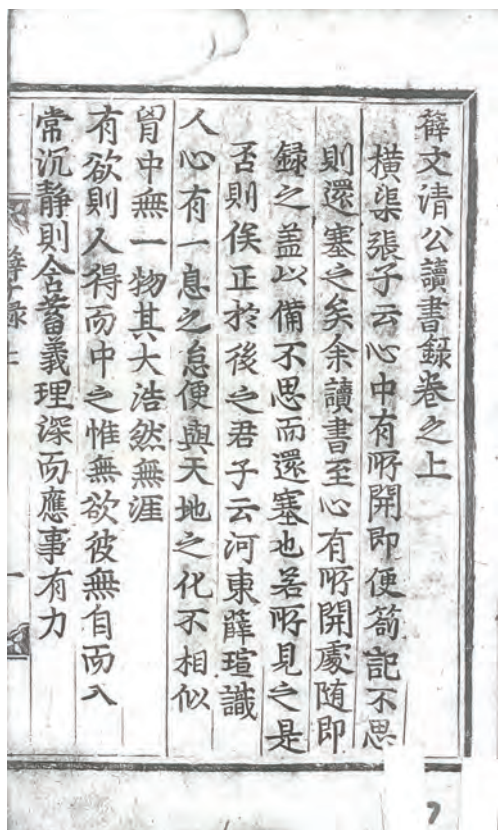 薛文清公讀書録卷之上
橫渠張子云心中有所開即便箚記不思
則還塞之矣余讀書至心有所開處随即
録之盖以備不思而還塞也若所見之是
否則俟正於後之君子云河東薛瑄識
人心有一息之怠便與天地之化不相似
胷中無一物其大浩然無涯
有欲則人得而中之惟無欲彼無自而入
常沉静則含蓄義理深而應事有力
7